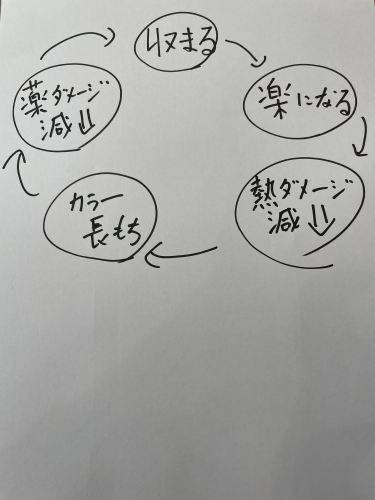 収まる
楽になる
熱ダメージ
減⇓
カラー
長もち
薬ダメージ
減⇓